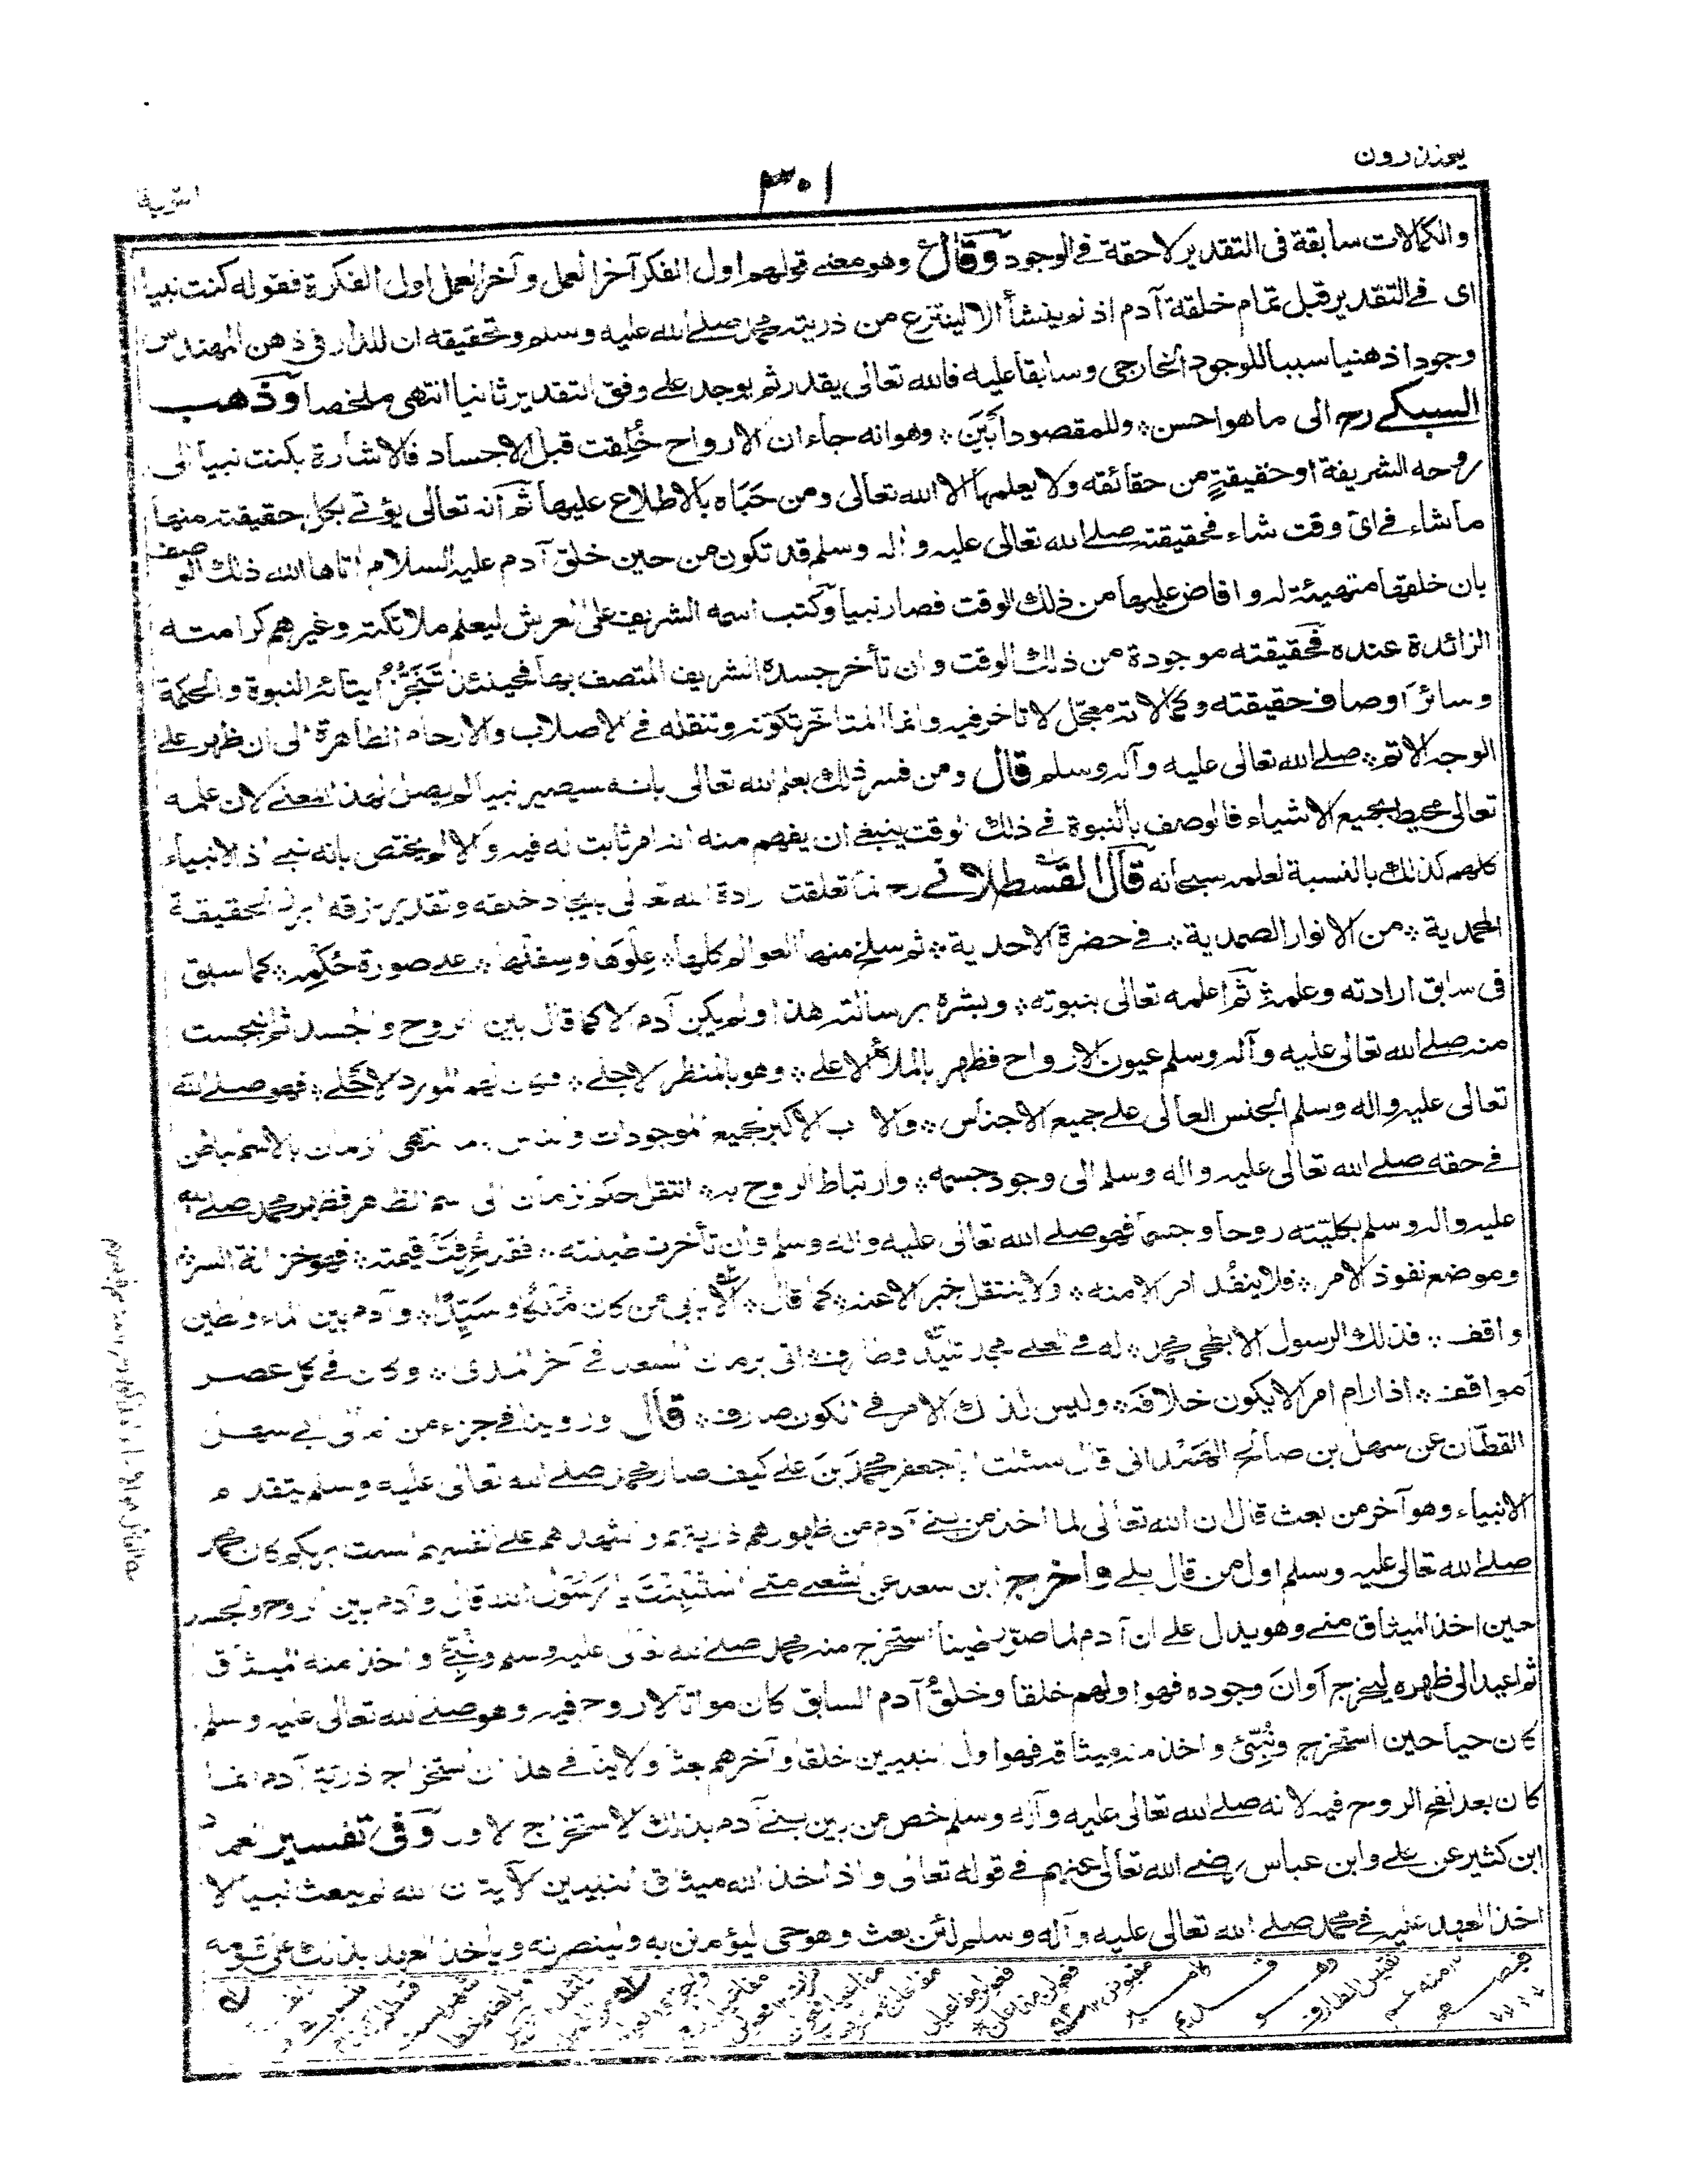 ٣٠١
والكمالات سابقة فى التقدير لاحقة فے الوجود وقال وهو معنے قولهم اول الفكر آخر العمل وآخر العمل اول الفكرة فقوله كنت نبيا
اى فے التقدير قبل تمام خلقة آدم اذ لم ينشأ الا لينتزع من ذريته محمد صلے الله عليه وسلم وتحقيقه ان للدار فى ذهن المهندس
وجودا ذهنيا سببا للوجود الخارجى وسابقا عليه فالله تعالى يقدر ثم يوجد علے وفق التقدير ثانيا انتهى ملخصا وذهب
السبكے رح الى ما هو احسن ٭ وللمقصود اَبْيَن ٭ وهو انه جاء ان الارواح خُلِقت قبل الاجساد فالاشارة بكنت نبيا الى
روحه الشريفة او حقيقةٍ من حقائقه ولا يعلمها الا الله تعالى ومن حَبَاه بالاطلاع عليها ثم انه تعالى يؤتے بكل حقيقة منها
ما شاء فے اىّ وقت شاء فحقيقته صلے الله تعالى عليه واله وسلم قد تكون من حين خلق آدم عليه السلام اتاها الله ذلك الوصف
بان خلقها متهيئة له وافاض عليها من ذلك الوقت فصار نبيا وكتب اسمه الشريف على العرش ليعلم ملائكته وغيرهم كرامته
الزائدة عنده فحقيقته موجودة من ذلك الوقت وان تأخر جسده الشريف المتصف بها فحينئذ تَنَجُّزُ ايتائه النبوة والحكمة
وسائر اوصاف حقيقته وكمالاته معجّل لا تاخر فيه وانما المتاخر تكونه وتنقله فے الاصلاب والارحام الطاهرة الى ان ظهر علے
الوجه الاتم ٭ صلے الله تعالى عليه وآله وسلم قال ومن فسر ذلك بعلم الله تعالى بانه سيصير نبيا لم يصل لهذا المعنے لان علمه
تعالى محيط بجميع الاشياء فالوصف بالنبوة فے ذلك الوقت ينبغے ان يفهم منه انه امر ثابت له فيه والا لم يختص بانه نبے اذ الانبياء
كلهم كذلك بالنسبة لعلمه سبحانه قال القسطلانے رح لما تعلقت ارادة الله تعالى بايجاد خلقه وتقدير رزقه ابرز الحقيقة
المحمدية ٭ من الانوار الصمدية ٭ فے حضرة الاحدية ٭ ثم سلخ منها العوالم كلها ٭ عِلْوَها وسِفْلَها ٭ علے صورة حُكْمِه ٭ كما سبق
فى سابق ارادته وعلمه ٭ ثم اعلمه تعالى بنبوته ٭ وبشره برسالته هذا ولم يكن آدم الا كما قال بين الروح والجسد ثم انبجست
منه صلے الله تعالى عليه وآله وسلم عيون الارواح فظهر بالملأ الاعلے ٭ وهو بالمنظر الاجلے ٭ فكان لهم المورد الاحلے ٭ فهو صلے الله
تعالى عليه واله وسلم الجنس العالى علے جميع الاجناس ٭ والاب الاكبر لجميع الموجودات والناس ولما انتهى الزمان بالاسم الباطن
فے حقه صلے الله تعالى عليه واله وسلم الى وجود جسمه ٭ وارتباط الروح به ٭ انتقل حكم الزمان الى اسم الظاهر فظهر محمد صلے الله
عليه واله وسلم بكليّته روحا وجسما فهو صلے الله تعالى عليه واله وسلم وان تأخرت طينته ٭ فقد عُرِفَتْ قيمته ٭ فهو خزانة السر ٭
وموضع نفوذ الامر ٭ فلا ينفُذ امر الا منه ٭ ولا ينتقل خبر الا عنه ٭ كما قال ٭ اَلَا بابى من كان مَلِكًا وسَيِّدًا ٭ وآدم بين الماء والطين
واقف ٭ فذلك الرسول الابطحى محمد ٭ له فے العلے مجد تليد وطارف ٭ اتى بزمان السعد فے آخر المدى ٭ وكان فے كل عصر
مواقف ٭ اذا رام امرا لا يكون خلافَه ٭ وليس لذلك الامر فے الكون صارف ٭ قال وروينا فے جزء من امالى ابے سهل
القطّان عن سهل بن صالح الهَمْدانى قال سئلت ابا جعفر محمدَ بنَ علے كيف صار محمد صلے الله تعالى عليه وسلم يتقدم
الانبياء وهو آخر من بعث قال ان الله تعالى لما اخذ من بنے آدم من ظهورهم ذريتهم واشهدهم علے انفسهم الست بربكم كان محمد
صلے الله تعالى عليه وسلم اول من قال بلے واخرج ابن سعد عن الشعبے متے استُنْبِئْتَ يا رَسُوْلَ الله قال وآدم بين الروح والجسد
حين اخذ الميثاق منے وهو يدل علے ان آدم لما صوّر طينا استخرج منه محمد صلے الله تعالى عليه وسلم ونُبِّئَ واخذ منه الميثاق
ثم اعيد الى ظهره ليخرج اَوانَ وجوده فهو اولهم خلقا وخلقُ آدم السابق كان مواتا لا روح فيه وهو صلے الله تعالى عليه وسلم
كان حيا حين استخرج ونُبِّئَ واخذ منه ميثاقه فهو اول النبيين خلقا وآخرهم بعثا ولا ينافے هذا ان استخراج ذرية آدم انما
كان بعد نفخ الروح فيه لانه صلے الله تعالى عليه وآله وسلم خص من بين بنے آدم بذلك الاستخراج الاول وفى تفسير العماد
ابن كثير عن علے وابن عباس رضے الله تعالى عنهم فے قوله تعالى واذ اخذ الله ميثاق النبيين الآية ان الله لم يبعث نبيا الا
اخذ العهد عليه فے محمد صلے الله تعالى عليه وآله وسلم لئن بعث وهو حى ليؤمنن به ولينصرنه وياخذ العهد بذلك على قومه